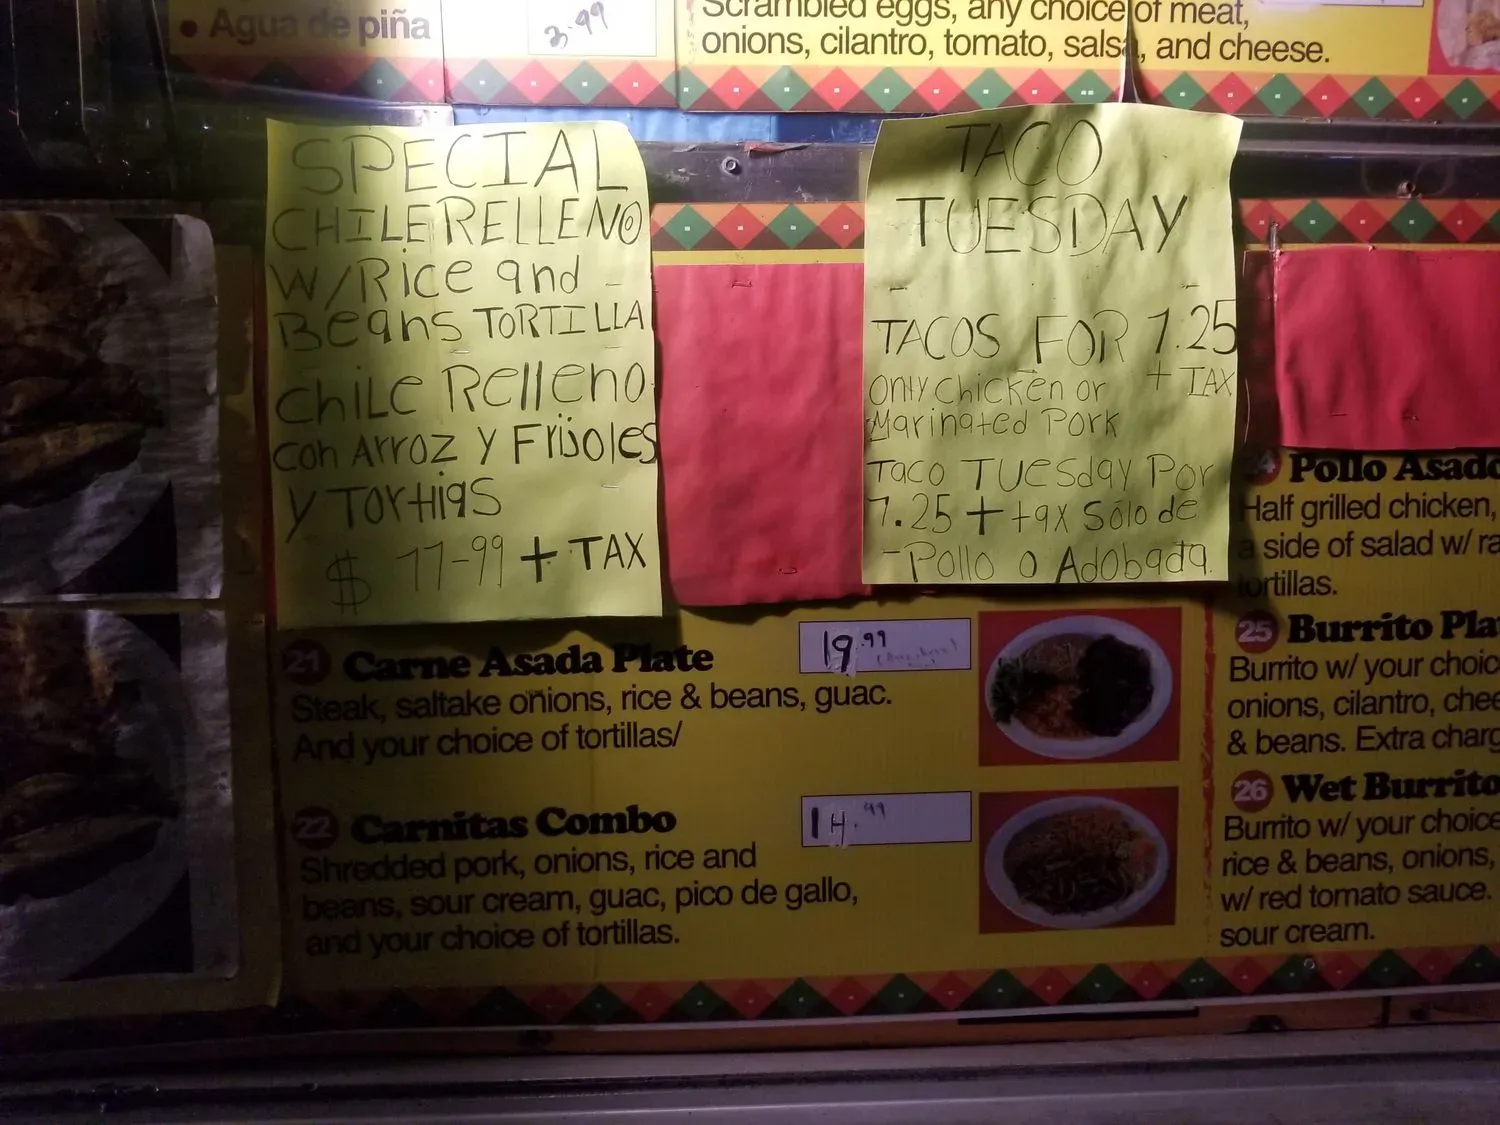 • Agua de piña
3.99
Scrambled eggs, any choice of meat,
onions, cilantro, tomato, salsa, and cheese.
SPECIAL
CHILE RELLENO
W/Rice and
Beans TORTILLA
chile Relleno
con Arroz y Frijoles
y Tortigs
$ 11-99 + TAX
TACO
TUESDAY
TACOS FOR 1.25
+ TAX
Only Chicken or
Marinated Pork
Taco Tuesday Por
1.25 + tax Sólo de
-Pollo o Adobada.
21 Carne Asada Plate
19.99
Steak, saltake onions, rice & beans, guac.
And your choice of tortillas/
22 Carnitas Combo
14.99
Shredded pork, onions, rice and
beans, sour cream, guac, pico de gallo,
and your choice of tortillas.
Pollo Asado
Half grilled chicken,
a side of salad w/ ra
tortillas.
25 Burrito Pla
Burrito w/ your choic
onions, cilantro, chee
& beans. Extra charg
26 Wet Burrito
Burrito w/ your choice
rice & beans, onions,
w/ red tomato sauce.
sour cream.